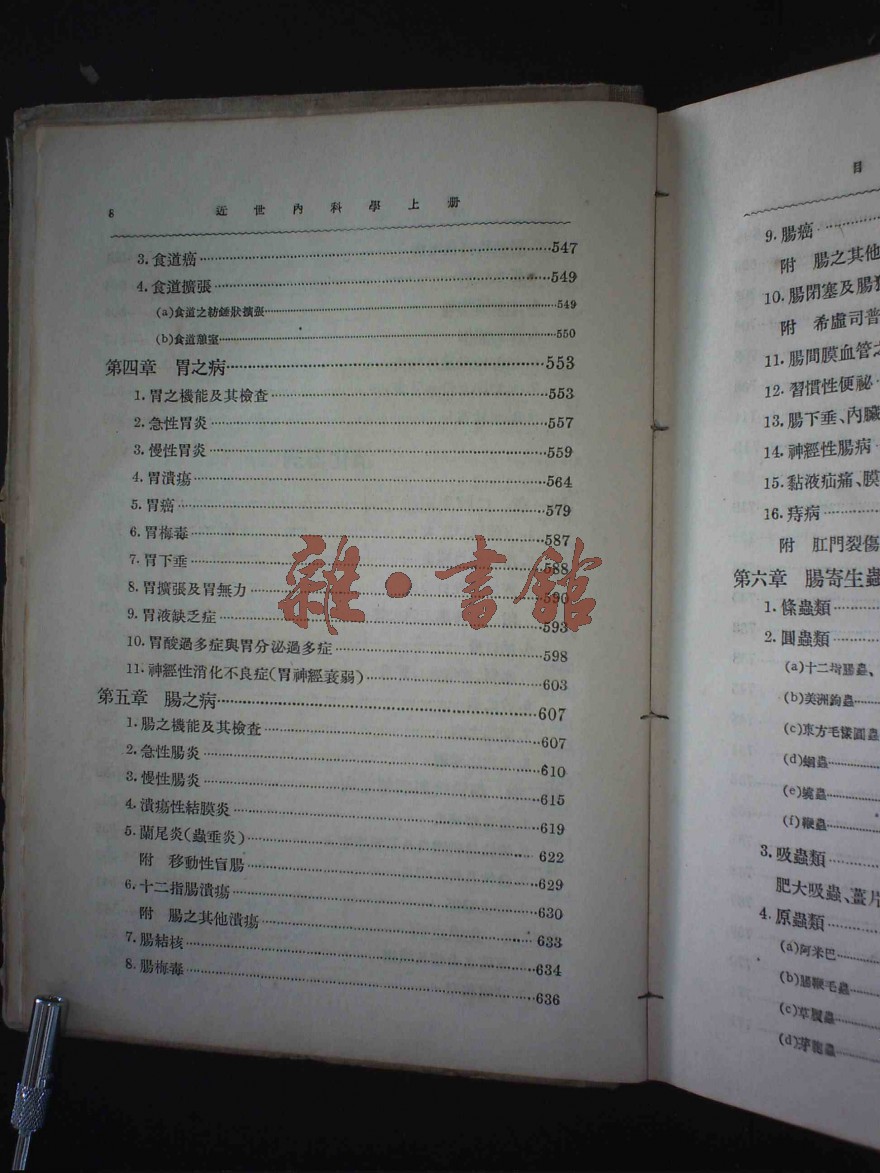 8 近世內科學上册
3. 食道癌 547
4. 食道擴張 549
(a)食道之紡錘狀擴張 549
(b)食道憩室 550
第四章 胃之病 553
1. 胃之機能及其檢查 553
2. 急性胃炎 557
3. 慢性胃炎 559
4. 胃潰瘍 564
5. 胃癌 579
6. 胃梅毒 587
7. 胃下垂 588
8. 胃擴張及胃無力 590
9. 胃液缺乏症 593
10. 胃酸過多症與胃分泌過多症 598
11. 神經性消化不良症(胃神經衰弱) 603
第五章 腸之病 607
1. 腸之機能及其檢查 607
2. 急性腸炎 610
3. 慢性腸炎 615
4. 潰瘍性結膜炎 619
5. 蘭尾炎(蟲垂炎) 622
附 移動性盲腸 629
6. 十二指腸潰瘍 630
附 腸之其他潰瘍 633
7. 腸結核 634
8. 腸梅毒 636
雜·書館
目
9. 腸癌
附 腸之其他
10. 腸閉塞及腸狹
附 希盧司普
11. 腸間膜血管之
12. 習慣性便祕
13. 腸下垂、內臟
14. 神經性腸病
15. 黏液疝痛、膜
16. 痔病
附 肛門裂傷
第六章 腸寄生蟲
1. 條蟲類
2. 圓蟲類
(a)十二指腸蟲、
(b)美洲鉤蟲
(c)東方毛樣圓蟲
(d)蛔蟲
(e)蟯蟲
(f)鞭蟲
3. 吸蟲類
肥大吸蟲、薑片
4. 原蟲類
(a)阿米巴
(b)腸鞭毛蟲
(c)草履蟲
(d)芽胞蟲